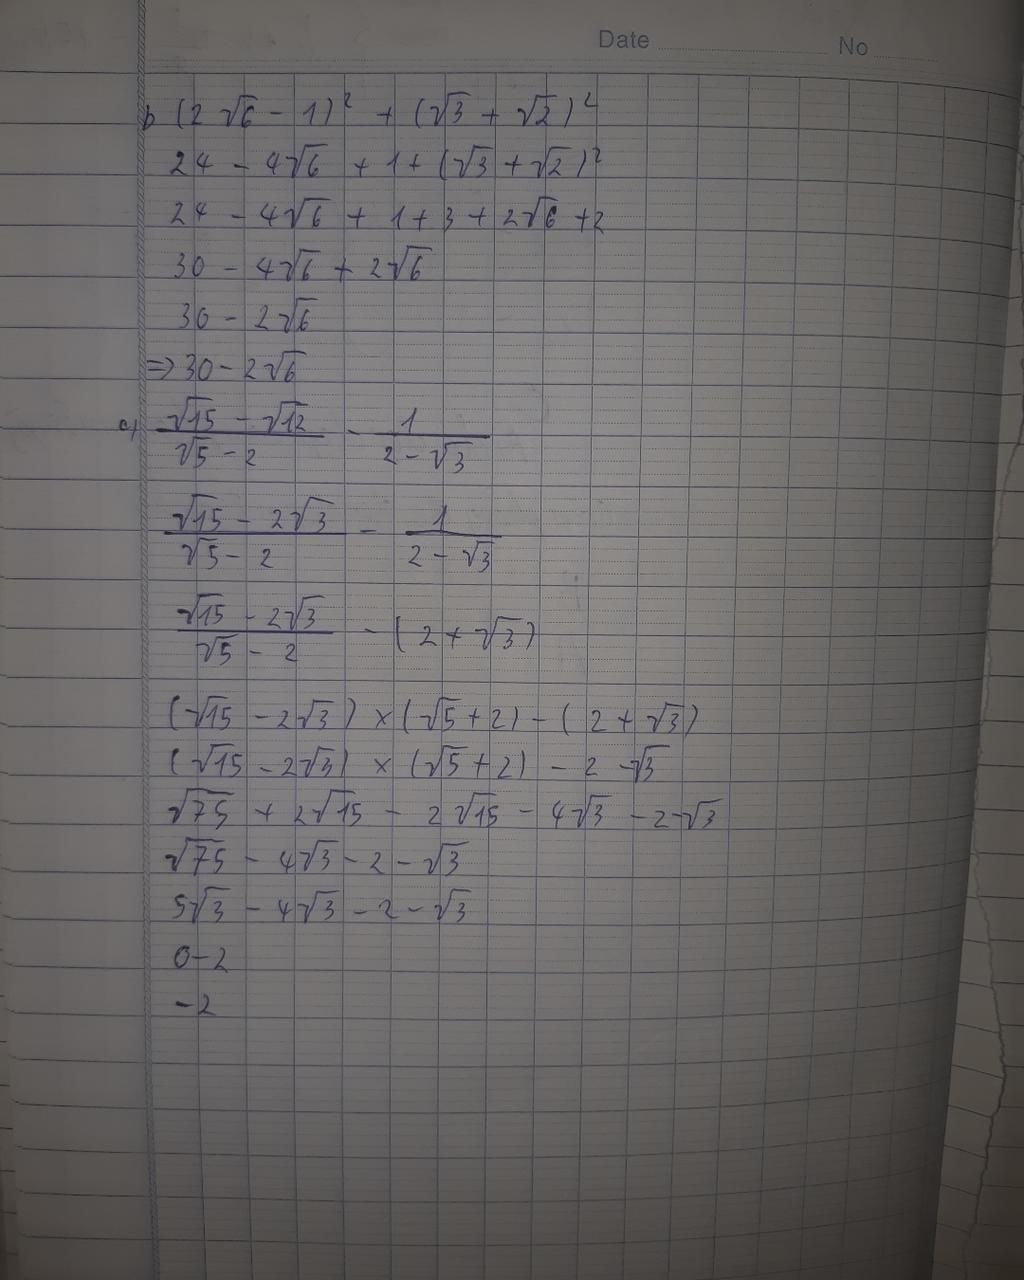 Date No
b (2√6 - 1)² + (√3 + √2)²
24 - 4√6 + 1 + (√3 + √2)²
24 - 4√6 + 1 + 3 + 2√6 + 2
30 - 4√6 + 2√6
30 - 2√6
=> 30 - 2√6
c) (√15 - √12)/(√5 - 2) - 1/(2 - √3)
(√15 - 2√3)/(√5 - 2) - 1/(2 - √3)
(√15 - 2√3)/(√5 - 2) - (2 + √3)
(√15 - 2√3) × (√5 + 2) - (2 + √3)
(√15 - 2√3) × (√5 + 2) - 2 - √3
√75 + 2√15 - 2√15 - 4√3 - 2 - √3
√75 - 4√3 - 2 - √3
5√3 - 4√3 - 2 - √3
0 - 2
- 2